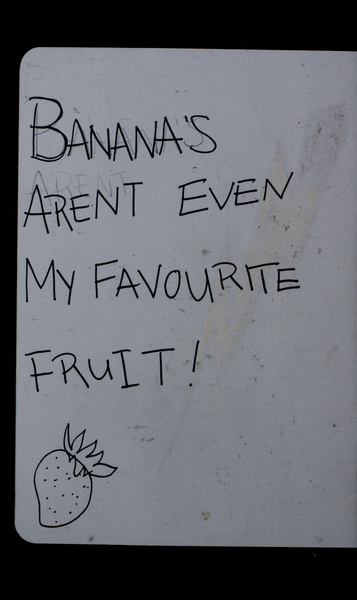 BANANA'S
ARENT EVEN
MY FAVOURITE
FRUIT!